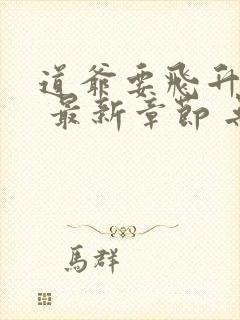 道爷要飛升
最新章節
馬群